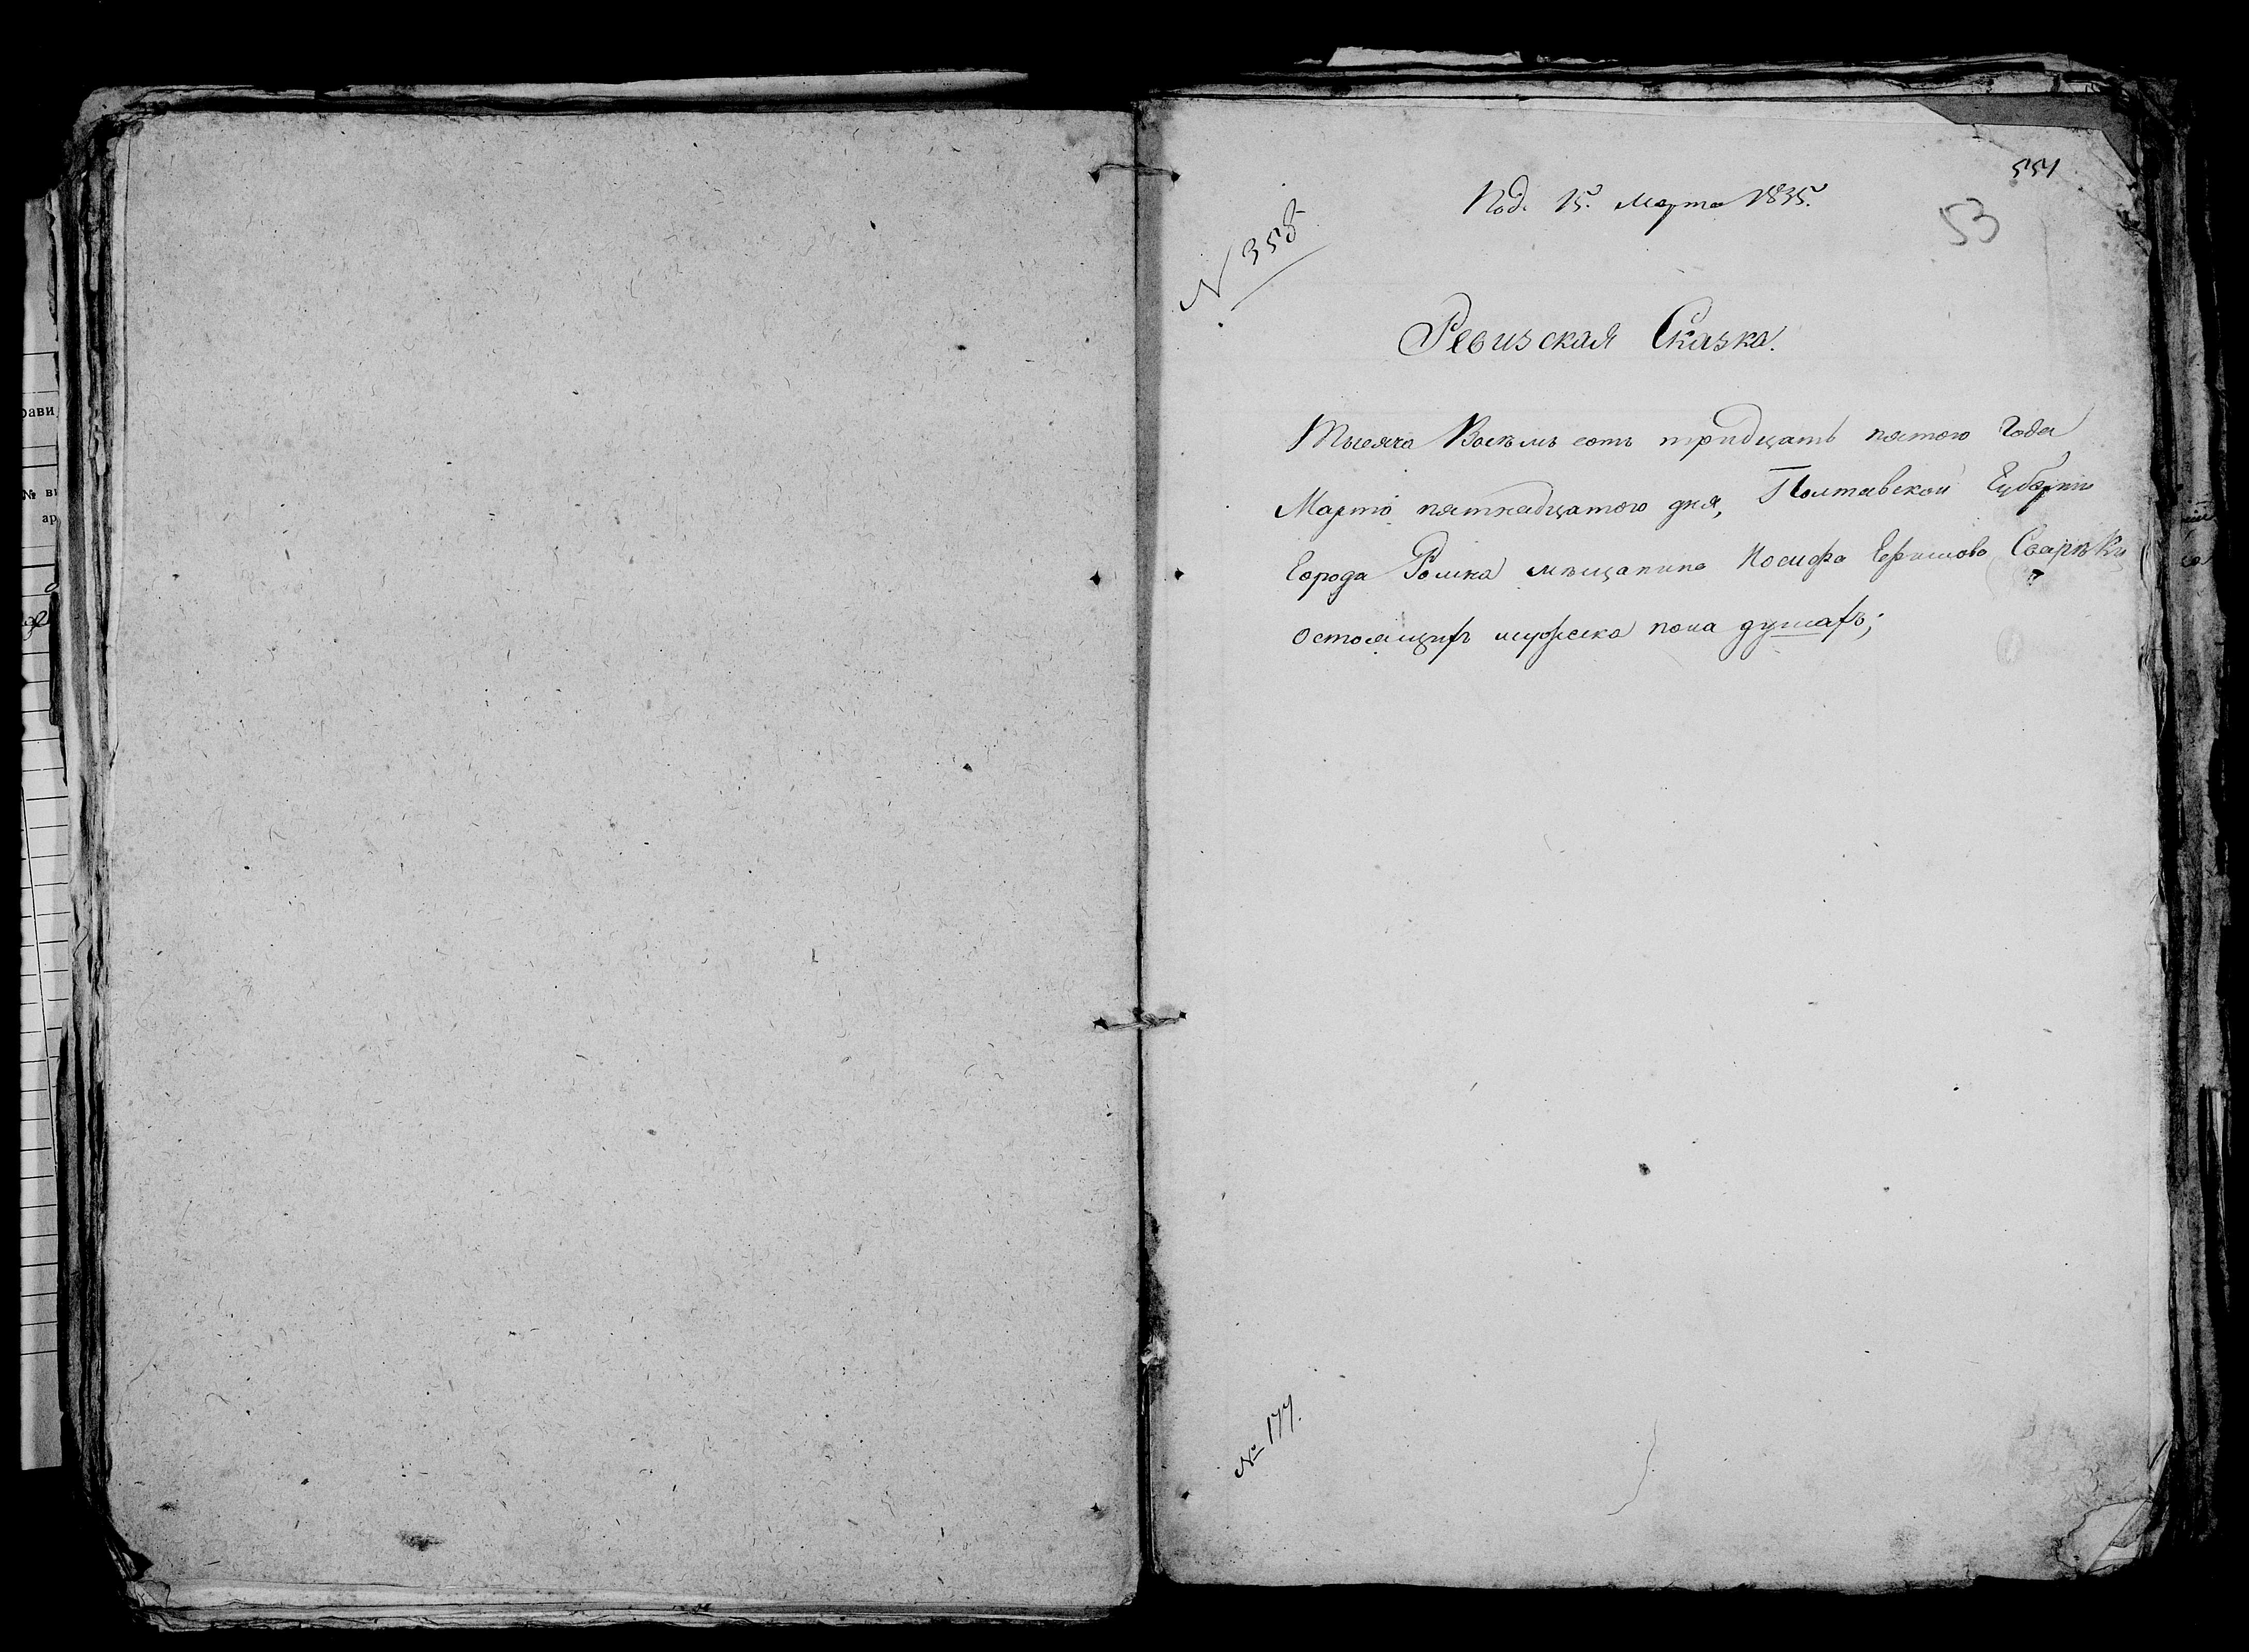 551
Под. 15. Марта 1835.
53
N 358.
Ревизская Сказка.
Тысяча Восѣмь сотъ тридцать пятого Года
Марта пятнадцатого дня, Полтавской Губерни
Города Ромна мещанина Иосифа Ефимова
Остоящихъ мужска пола душахъ;
№ 177.
рави
№ ви
ар